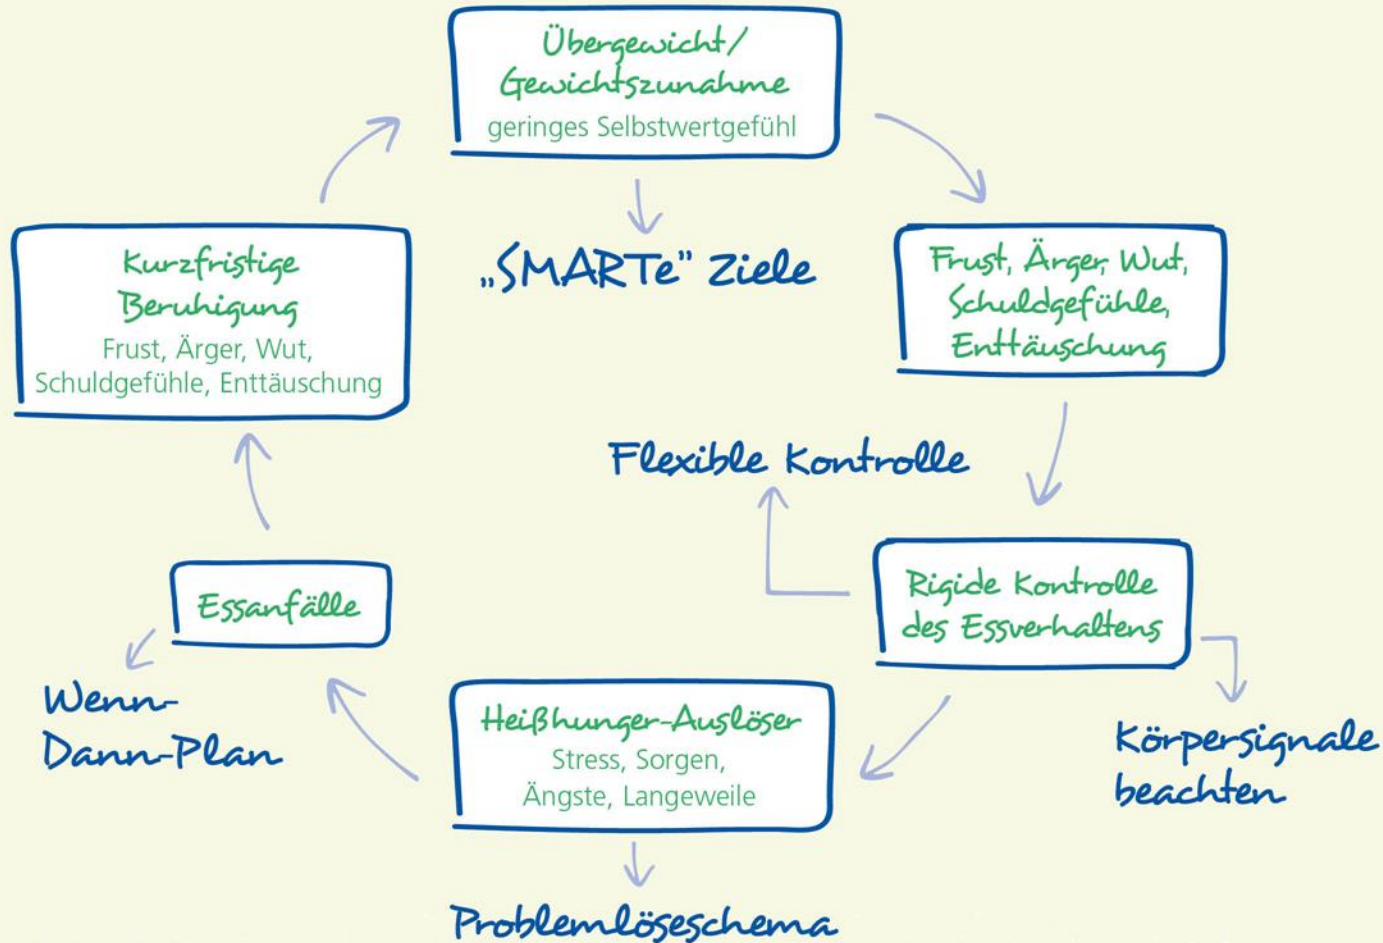 Übergewicht/
Gewichtszunahme
geringes Selbstwertgefühl
„SMARTe” Ziele
Frust, Ärger, Wut,
Schuldgefühle,
Enttäuschung
Flexible Kontrolle
Rigide Kontrolle
des Essverhaltens
Körpersignale
beachten
Heißhunger-Auslöser
Stress, Sorgen,
Ängste, Langeweile
Problemlöseschema
Essanfälle
Wenn-
Dann-Plan
Kurzfristige
Beruhigung
Frust, Ärger, Wut,
Schuldgefühle, Enttäuschung